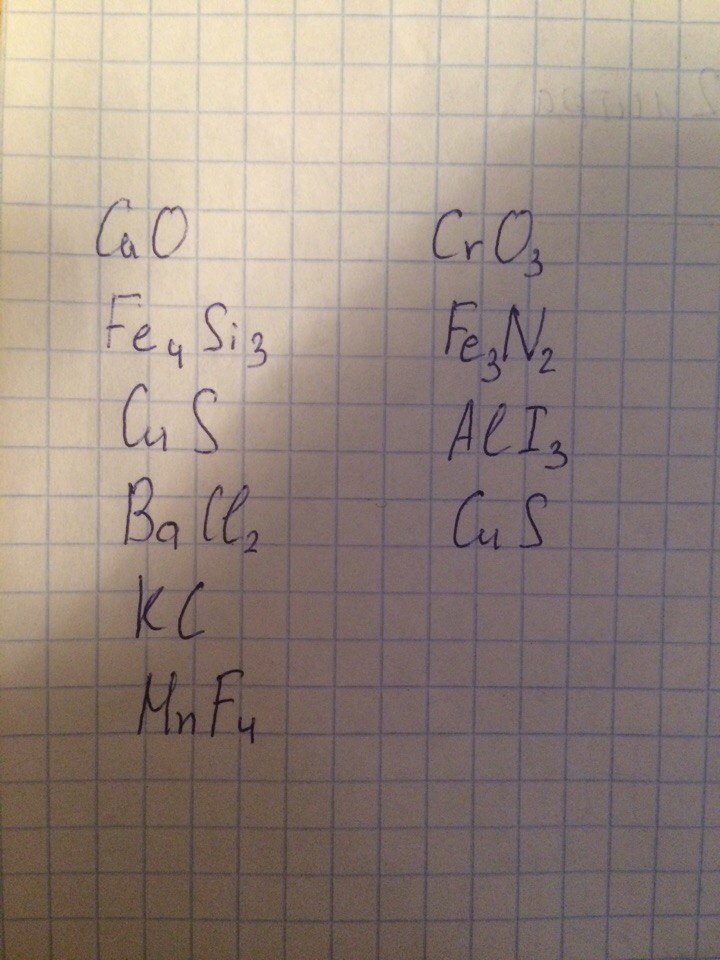 CaO
Fe₄Si₃
CuS
BaCl₂
KC
MnF₄
CrO₃
Fe₃N₂
AlI₃
CuS